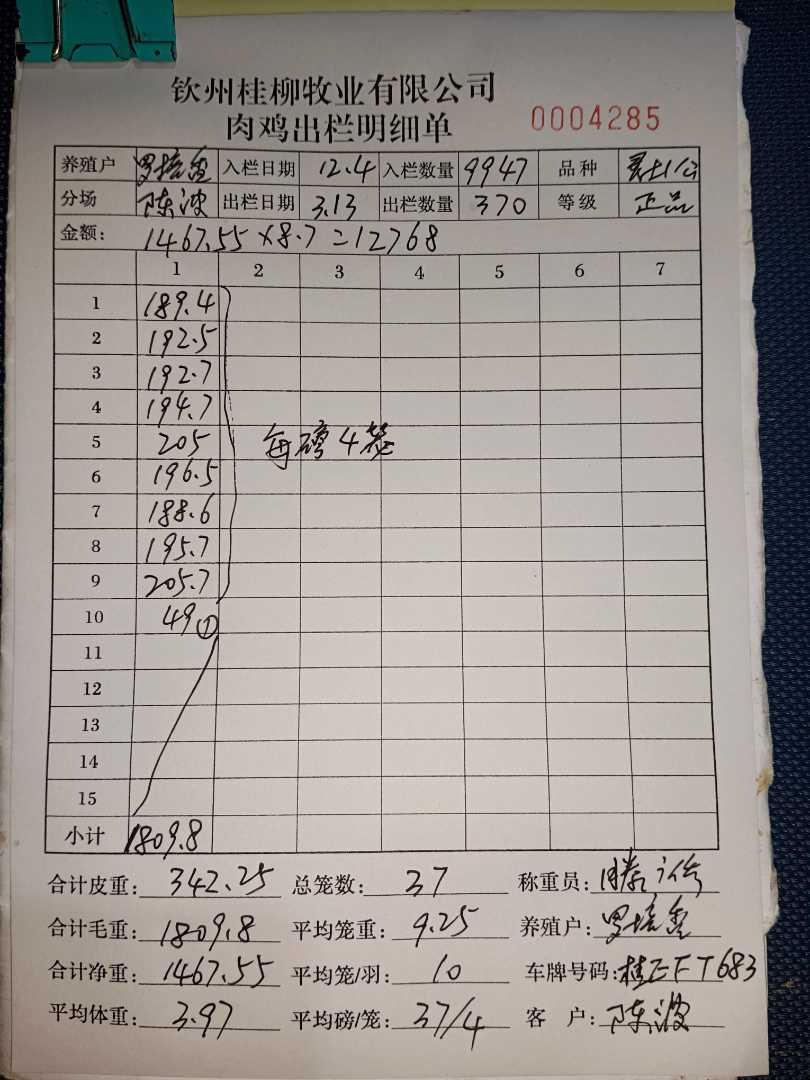 钦州桂柳牧业有限公司
肉鸡出栏明细单 0004285
养殖户 罗培 入栏日期 12.4 入栏数量 9947 品种
分场 陈波 出栏日期 3.13 出栏数量 370 等级 正品
金额: 1467.55×8.7=12768
1 2 3 4 5 6 7
1 189.4
2 192.5
3 192.7
4 194.7
5 205 每磅4笼
6 196.5
7 188.6
8 195.7
9 205.7
10 49①
11
12
13
14
15
小计 1809.8
合计皮重: 342.25 总笼数: 37 称重员:
合计毛重: 1809.8 平均笼重: 9.25 养殖户: 罗培
合计净重: 1467.55 平均笼/羽: 10 车牌号码: 桂EFT683
平均体重: 3.97 平均磅/笼: 37/4 客 户: 陈波